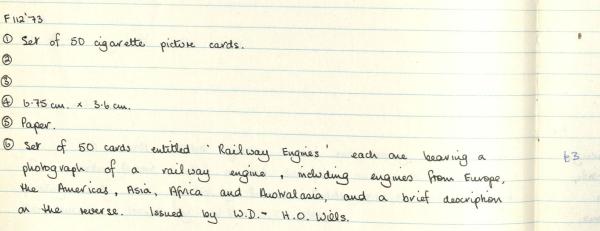 F112'73
① Set of 50 cigarette picture cards.
②
③
④ 6.75 cm. x 3.6 cm.
⑤ Paper.
⑥ Set of 50 cards entitled 'Railway Engines' each one bearing a £3
photograph of a railway engine, including engines from Europe,
the Americas, Asia, Africa and Australasia, and a brief description
on the reverse. Issued by W.D. - H.O. Wills.